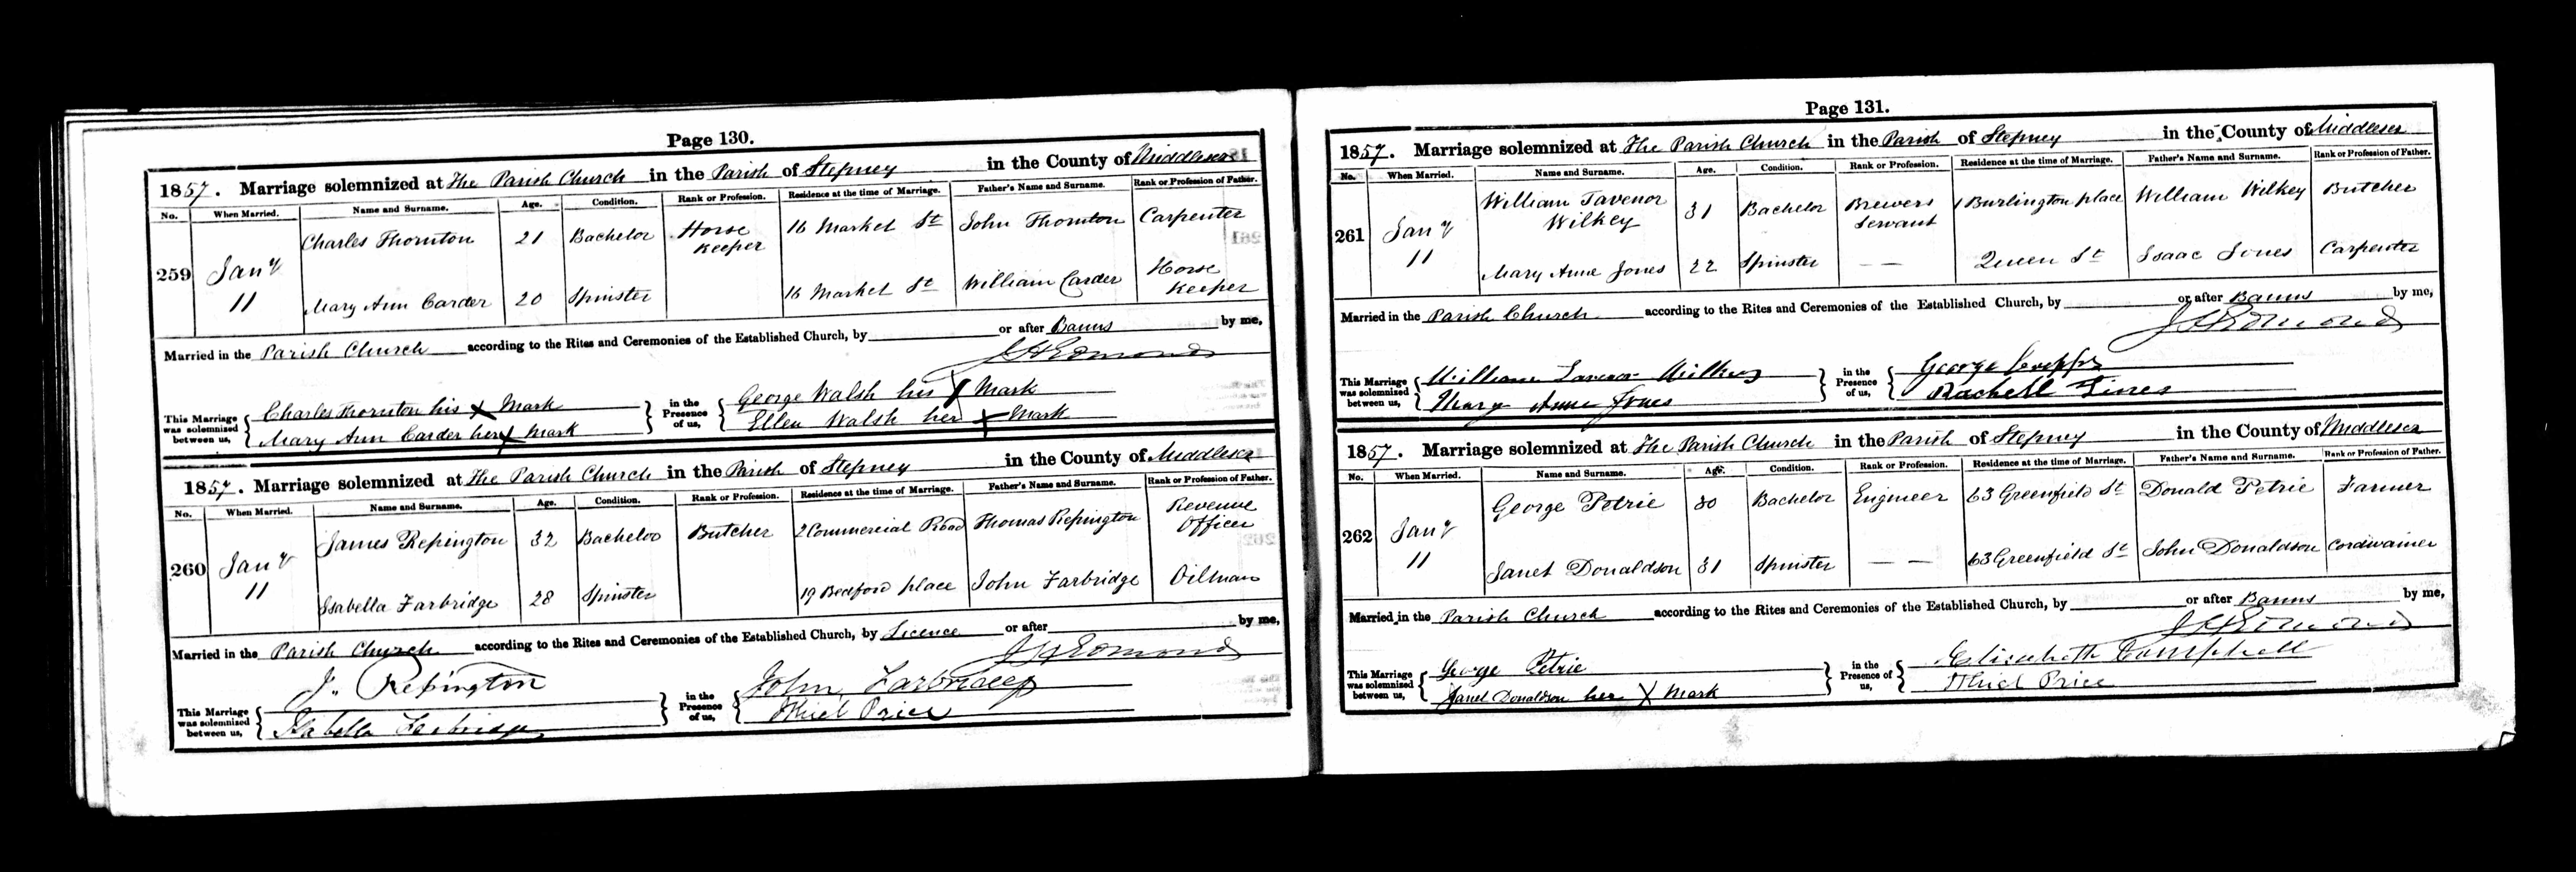 Page 130.
1857. Marriage solemnized at The Parish Church in the Parish of Stepney in the County of Middlesex
No. When Married. Name and Surname. Age. Condition. Rank or Profession. Residence at the time of Marriage. Father's Name and Surname. Rank or Profession of Father.
259 Jany 11 Charles Thornton 21 Bachelor Horse Keeper 16 Market St John Thornton Carpenter
Mary Ann Carder 20 Spinster 16 Market St William Carder Horse Keeper
Married in the Parish Church according to the Rites and Ceremonies of the Established Church, by or after Banns by me,
J H Edmonds
This Marriage was solemnized between us, Charles Thornton his X Mark in the Presence of us, George Walsh his X Mark
Mary Ann Carder her X Mark Ellen Walsh her X Mark
1857. Marriage solemnized at The Parish Church in the Parish of Stepney in the County of Middlesex
No. When Married. Name and Surname. Age. Condition. Rank or Profession. Residence at the time of Marriage. Father's Name and Surname. Rank or Profession of Father.
260 Jany 11 James Repington 32 Bachelor Butcher 2 Commercial Road Thomas Repington Revenue Officer
Isabella Farbridge 28 Spinster 19 Bedford place John Farbridge Oilman
Married in the Parish Church according to the Rites and Ceremonies of the Established Church, by Licence or after by me,
J H Edmonds
This Marriage was solemnized between us, J. Repington in the Presence of us, John Farbridge
Isabella Farbridge Price
Page 131.
1857. Marriage solemnized at The Parish Church in the Parish of Stepney in the County of Middlesex
No. When Married. Name and Surname. Age. Condition. Rank or Profession. Residence at the time of Marriage. Father's Name and Surname. Rank or Profession of Father.
261 Jany 11 William Tavenor Wilkey 31 Bachelor Brewers Servant 1 Burlington place William Wilkey Butcher
Mary Anne Jones 22 Spinster — — Queen St Isaac Jones Carpenter
Married in the Parish Church according to the Rites and Ceremonies of the Established Church, by or after Banns by me,
J H Edmonds
This Marriage was solemnized between us, William Tavenor Wilkey in the Presence of us, George
Mary Anne Jones Rachell Lines
1857. Marriage solemnized at The Parish Church in the Parish of Stepney in the County of Middlesex
No. When Married. Name and Surname. Age. Condition. Rank or Profession. Residence at the time of Marriage. Father's Name and Surname. Rank or Profession of Father.
262 Jany 11 George Petrie 30 Bachelor Engineer 63 Greenfield St Donald Petrie Farmer
Janet Donaldson 31 Spinster — — 63 Greenfield St John Donaldson Cordwainer
Married in the Parish Church according to the Rites and Ceremonies of the Established Church, by or after Banns by me,
J H Edmonds
This Marriage was solemnized between us, George Petrie in the Presence of us, Elizabeth Campbell
Janet Donaldson her X Mark Price